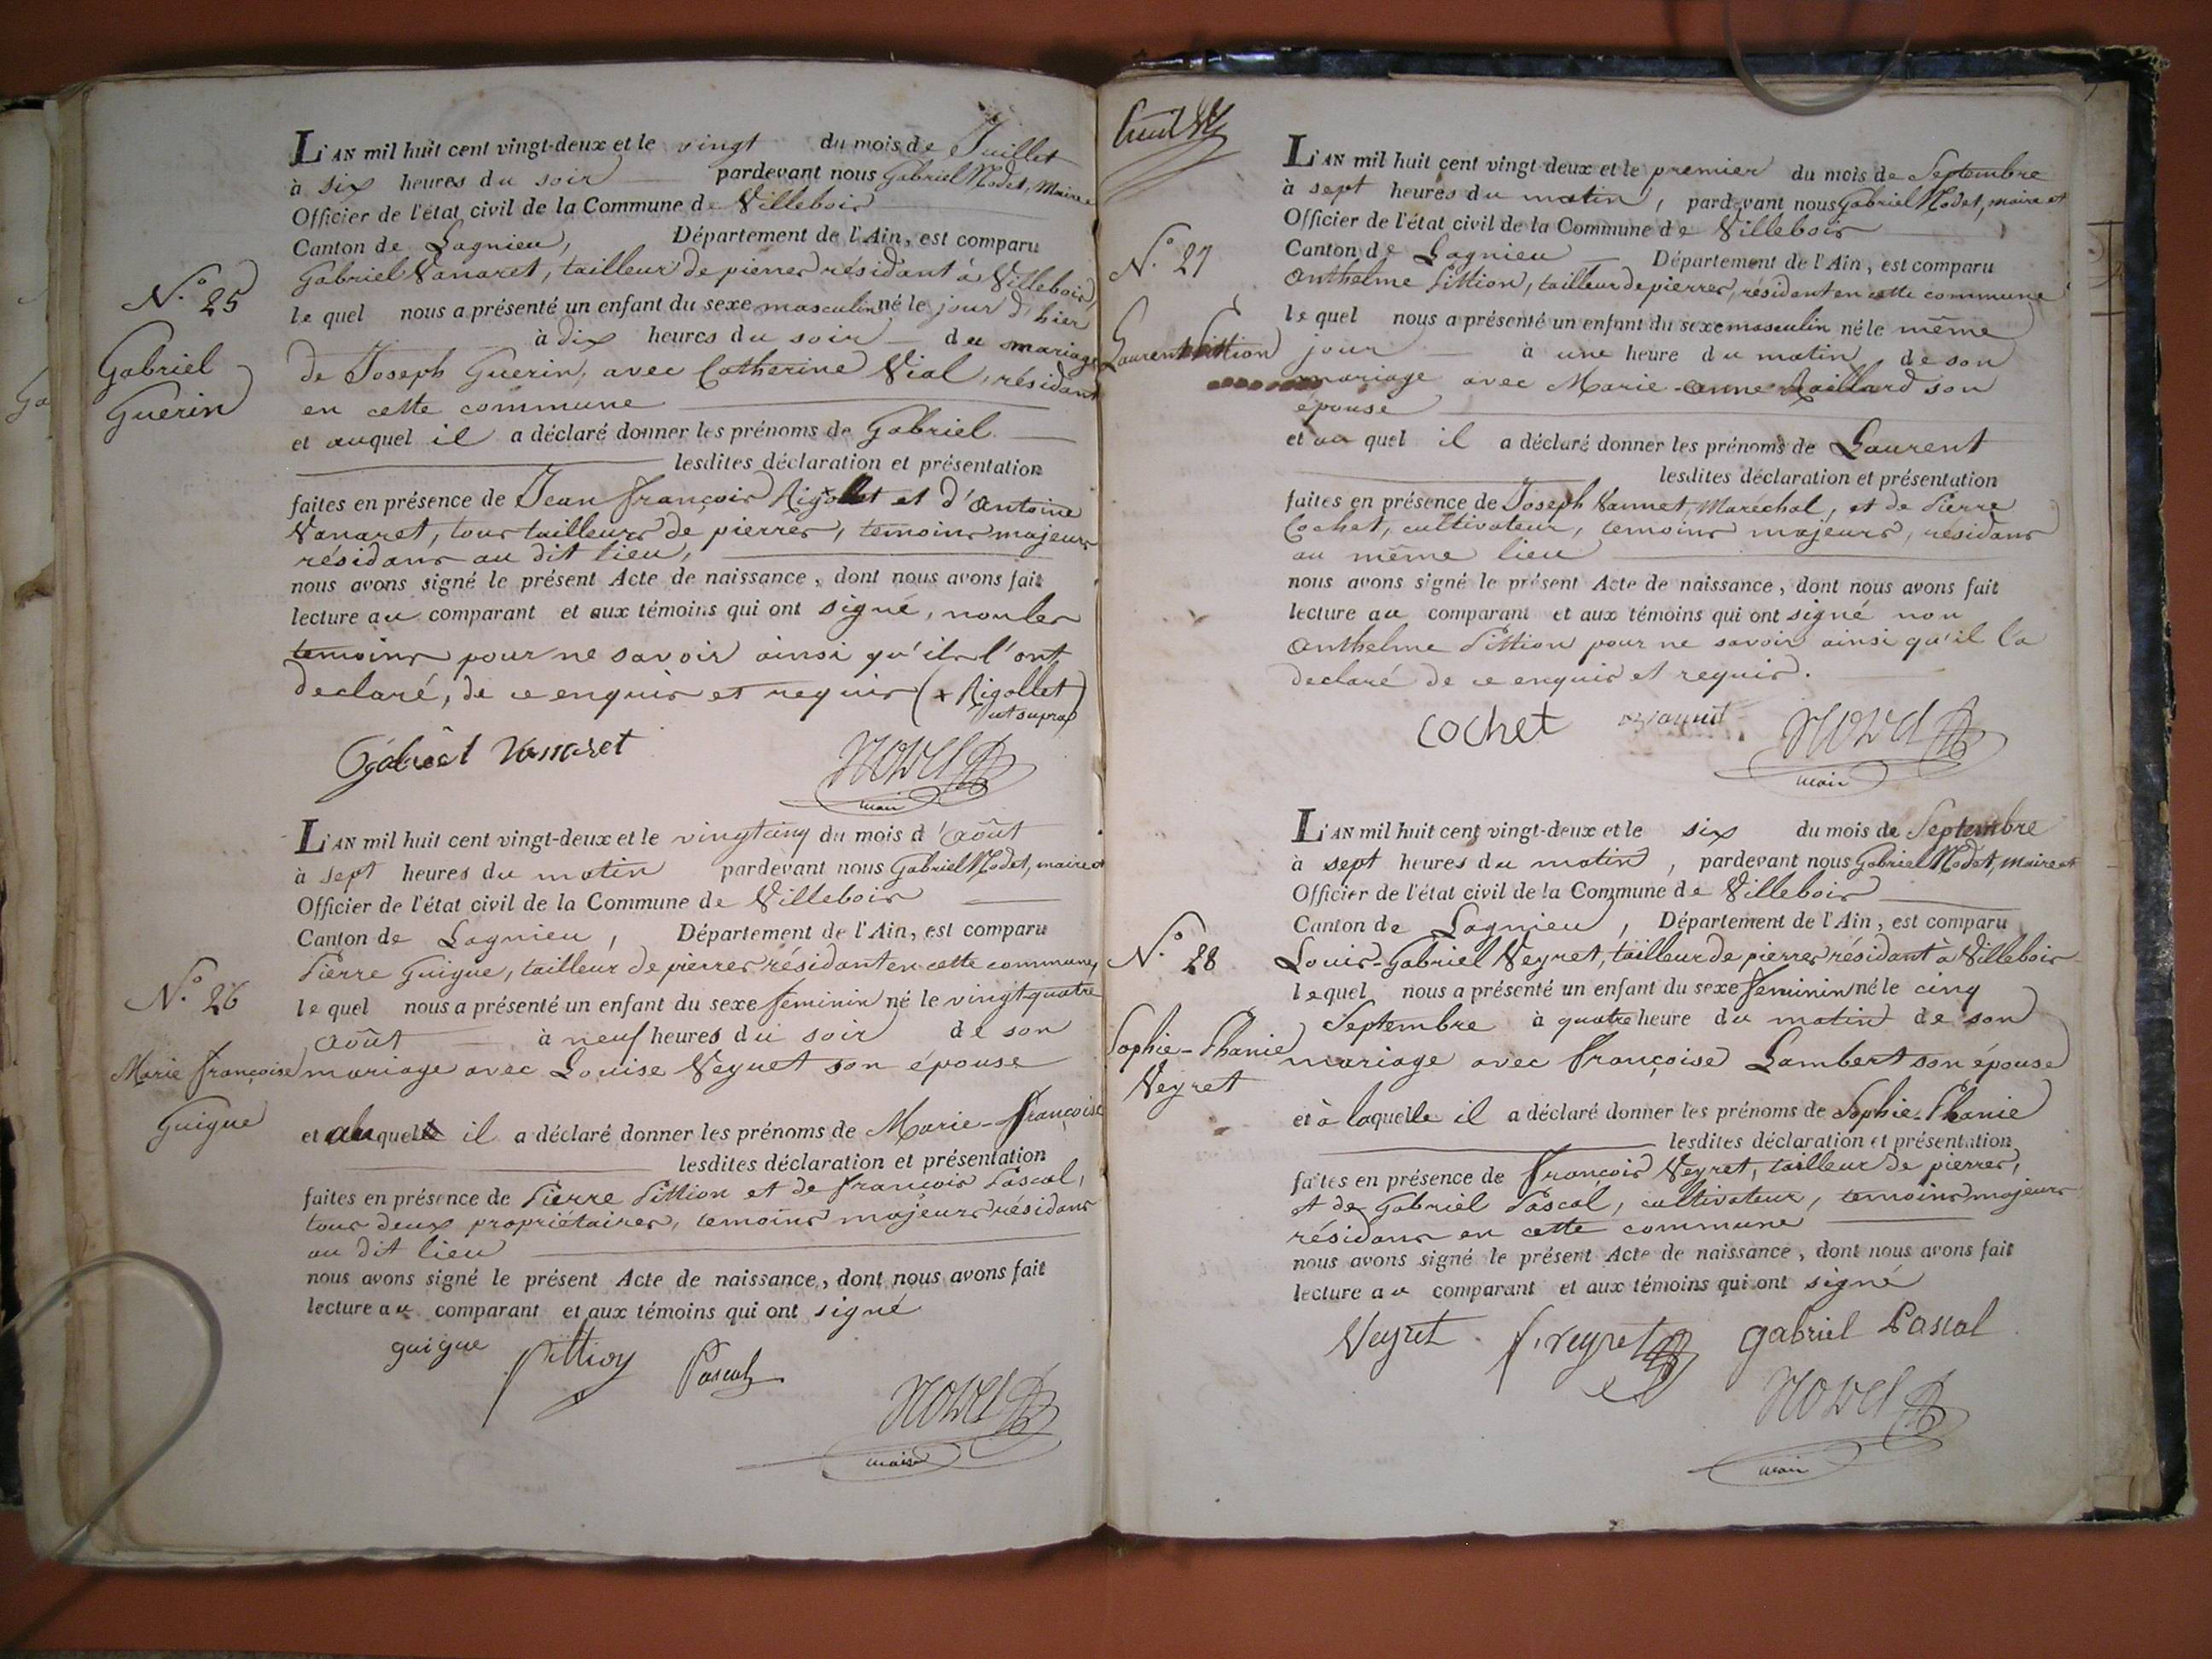 L'AN mil huit cent vingt-deux et le vingt du mois de Juillet
à six heures du soir pardevant nous Gabriel Nodet, Maire
Officier de l'état civil de la Commune de Villebois
Canton de Lagnieu, Département de l'Ain, est comparu
Gabriel Vanaret, tailleur de pierres résidant à Villebois,
N.° 25
le quel nous a présenté un enfant du sexe masculin né le jour d'hier
à dix heures du soir du mariage
Gabriel
Guerin
de Joseph Guerin, avec Catherine Vial, résidant
en cette commune
et auquel il a déclaré donner les prénoms de Gabriel
lesdites déclaration et présentation
faites en présence de Jean françois Rigollet et d'Antoine
Vanaret, tous tailleurs de pierres, temoins majeurs
résidans au dit lieu,
nous avons signé le présent Acte de naissance, dont nous avons fait
lecture au comparant et aux témoins qui ont signé, non les
temoins pour ne savoir ainsi qu'ils l'ont
declaré, de ce enquis et requis (x Rigollet
ut supra)
Gabriel Vanaret
Nodet
maire
L'AN mil huit cent vingt-deux et le vingt cinq du mois d'Août
à sept heures du matin pardevant nous Gabriel Nodet, maire et
Officier de l'état civil de la Commune de Villebois
Canton de Lagnieu, Département de l'Ain, est comparu
Pierre Guigue, tailleur de pierres résidant en cette commune,
N.° 26
le quel nous a présenté un enfant du sexe feminin né le vingt-quatre
Août à neuf heures du soir de son
Marie françoise
Guigue
mariage avec Louise Veyret son épouse
et auquel il a déclaré donner les prénoms de Marie-françoise
lesdites déclaration et présentation
faites en présence de Pierre Pittion et de françois Pascal,
tous deux propriétaires, temoins majeurs résidans
au dit lieu
nous avons signé le présent Acte de naissance, dont nous avons fait
lecture au comparant et aux témoins qui ont signé
guigue Pittion Pascal
Nodet
maire
L'AN mil huit cent vingt-deux et le premier du mois de Septembre
à sept heures du matin, pardevant nous Gabriel Nodet, maire et
Officier de l'état civil de la Commune de Villebois
N.° 27
Canton de Lagnieu Département de l'Ain, est comparu
Anthelme Pittion, tailleur de pierres, résidant en cette commune
le quel nous a présenté un enfant du sexe masculin né le même
Laurent Pittion
jour à une heure du matin, de son
mariage avec Marie-Anne Raillard son
épouse
et au quel il a déclaré donner les prénoms de Laurent
lesdites déclaration et présentation
faites en présence de Joseph Vannet, Maréchal, et de Pierre
Cochet, cultivateur, temoins majeurs, résidans
au même lieu
nous avons signé le présent Acte de naissance, dont nous avons fait
lecture au comparant et aux témoins qui ont signé non
Anthelme Pittion pour ne savoir ainsi qu'il l'a
declaré de ce enquis et requis.
cochet
Nodet
maire
L'AN mil huit cent vingt-deux et le six du mois de Septembre
à sept heures du matin, pardevant nous Gabriel Nodet, maire et
Officier de l'état civil de la Commune de Villebois
Canton de Lagnieu, Département de l'Ain, est comparu
N.° 28
Louis-Gabriel Veyret, tailleur de pierres résidant à Villebois
lequel nous a présenté un enfant du sexe feminin né le cinq
Septembre à quatre heure du matin de son
Sophie-Phanie
Veyret
mariage avec françoise Lambert son épouse
et à laquelle il a déclaré donner les prénoms de Sophie-Phanie
lesdites déclaration et présentation
faites en présence de françois Veyret, tailleur de pierres,
et de Gabriel Pascal, cultivateur, temoins majeurs
résidans en cette commune
nous avons signé le présent Acte de naissance, dont nous avons fait
lecture au comparant et aux témoins qui ont signé
Veyret f. veyret gabriel Pascal
Nodet
maire